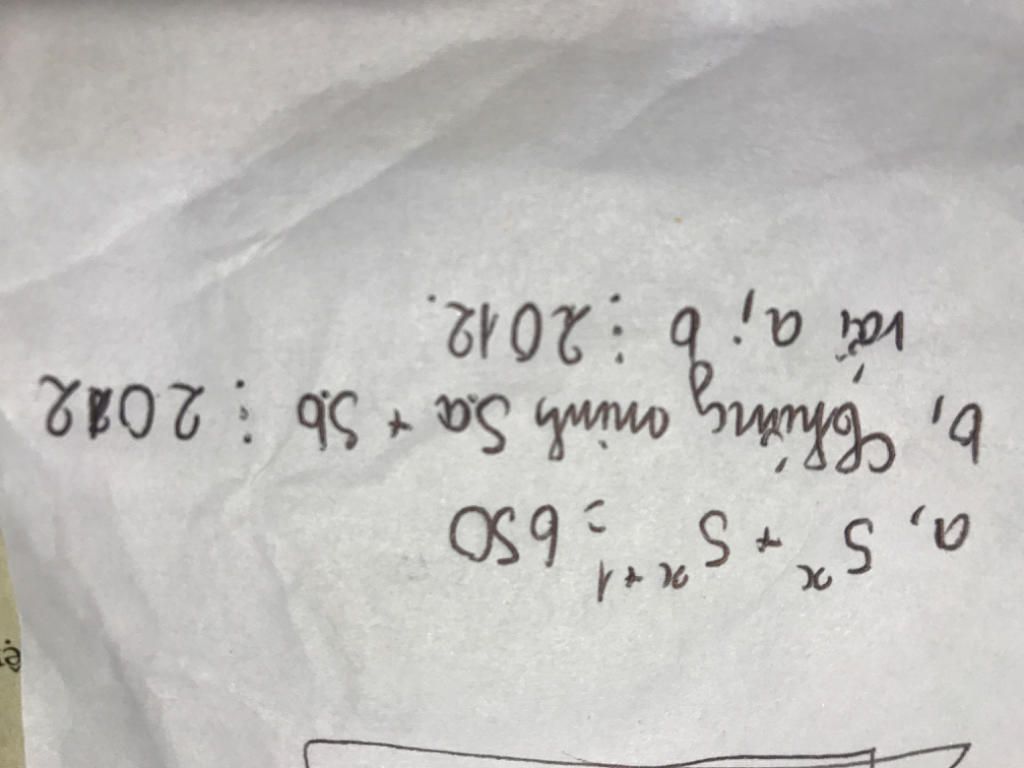 a, 5^x + 5^x+1 = 650
b, Chứng minh 5a + 3b ⋮ 2012
với a; b ⋮ 2012.